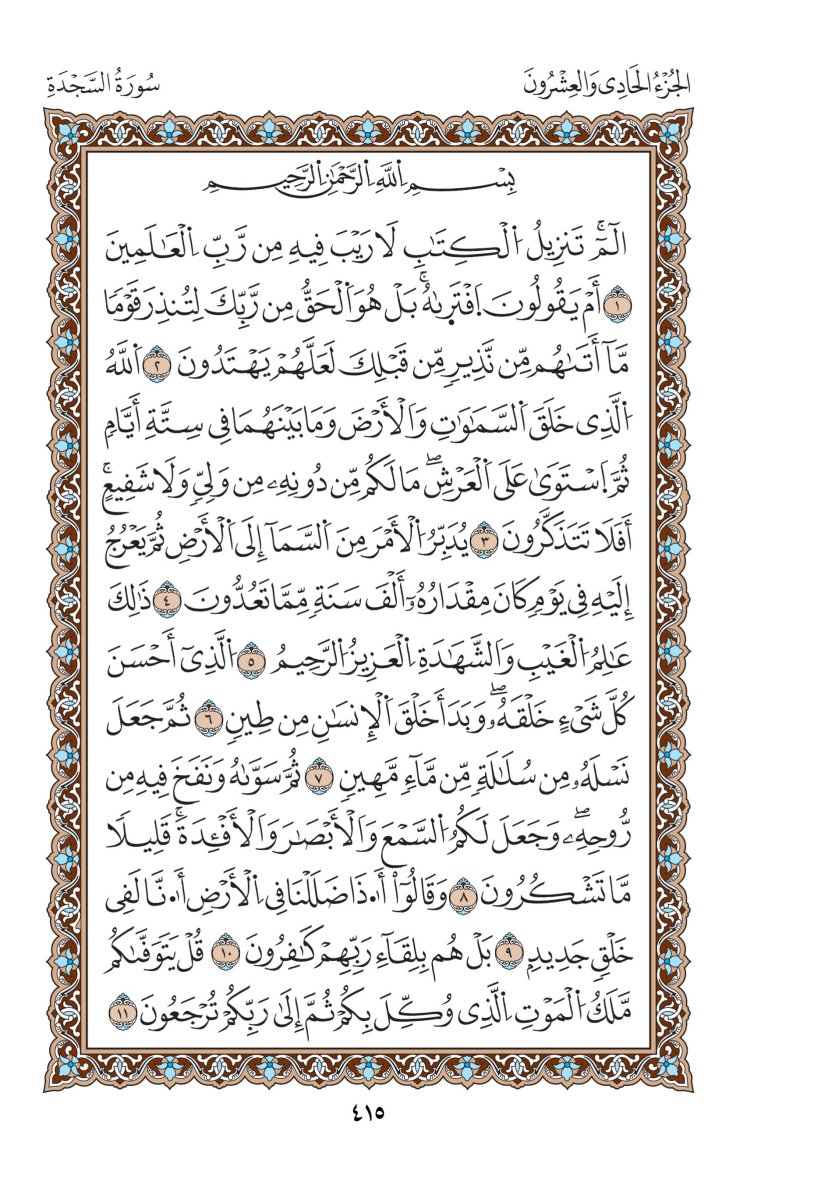 الجُزْءُ الحَادِى وَالعِشْرُونَ
سُورَةُ السَّجْدَةِ
بِسْمِ اِ۬للَّهِ اِ۬لرَّحْمَٰنِ اِ۬لرَّحِيمِ
الٓمٓۚ تَنزِيلُ اُ۬لْكِتَٰبِ لَا رَيْبَ فِيهِ مِن رَّبِّ اِ۬لْعَٰلَمِينَ
١ أَمْ يَقُولُونَ اَ۪فْتَر۪ىٰهُۚ بَلْ هُوَ اَ۬لْحَقُّ مِن رَّبِّكَ لِتُنذِرَ قَوْمٗا
مَّآ أَتَىٰهُم مِّن نَّذِيرٖ مِّن قَبْلِكَ لَعَلَّهُمْ يَهْتَدُونَ ٢ اَ۬للَّهُ
اُ۬لَّذِى خَلَقَ اَ۬لسَّمَٰوَٰتِ وَالْأَرْضَ وَمَا بَيْنَهُمَا فِى سِتَّةِ أَيَّامٖ
ثُمَّ اَ۪سْتَوَىٰ عَلَى اَ۬لْعَرْشِۖ مَا لَكُم مِّن دُونِهِۦ مِن وَلِيّٖ وَلَا شَفِيعٍۚ
أَفَلَا تَتَذَكَّرُونَ ٣ يُدَبِّرُ اُ۬لْأَمْرَ مِنَ اَ۬لسَّمَآ إِلَى اَ۬لْأَرْضِ ثُمَّ يَعْرُجُ
إِلَيْهِ فِى يَوْمٖ كَانَ مِقْدَارُهُۥٓ أَلْفَ سَنَةٖ مِّمَّا تَعُدُّونَ ٤ ذَٰلِكَ
عَٰلِمُ اُ۬لْغَيْبِ وَالشَّهَٰدَةِ اِ۬لْعَزِيزُ اُ۬لرَّحِيمُ ٥ اُ۬لَّذِىٓ أَحْسَنَ
كُلَّ شَىْءٍ خَلْقَهُۥۖ وَبَدَأَ خَلْقَ اَ۬لْإِنسَٰنِ مِن طِينٖ ٦ ثُمَّ جَعَلَ
نَسْلَهُۥ مِن سُلَٰلَةٖ مِّن مَّآءٖ مَّهِينٖ ٧ ثُمَّ سَوَّىٰهُ وَنَفَخَ فِيهِ مِن
رُّوحِهِۦۖ وَجَعَلَ لَكُمُ اُ۬لسَّمْعَ وَالْأَبْصَٰرَ وَالْأَفْـِٔدَةَۚ قَلِيلٗا
مَّا تَشْكُرُونَ ٨ وَقَالُوٓاْ أَ۟ذَا ضَلَلْنَا فِى اِ۬لْأَرْضِ أَ۟نَّا لَفِى
خَلْقٖ جَدِيدِۭ ٩ بَلْ هُم بِلِقَآءِ رَبِّهِمْ كَٰفِرُونَ ١٠ قُلْ يَتَوَفَّىٰكُم
مَّلَكُ اُ۬لْمَوْتِ اِ۬لَّذِى وُكِّلَ بِكُمْ ثُمَّ إِلَىٰ رَبِّكُمْ تُرْجَعُونَ ١١
٤١٥